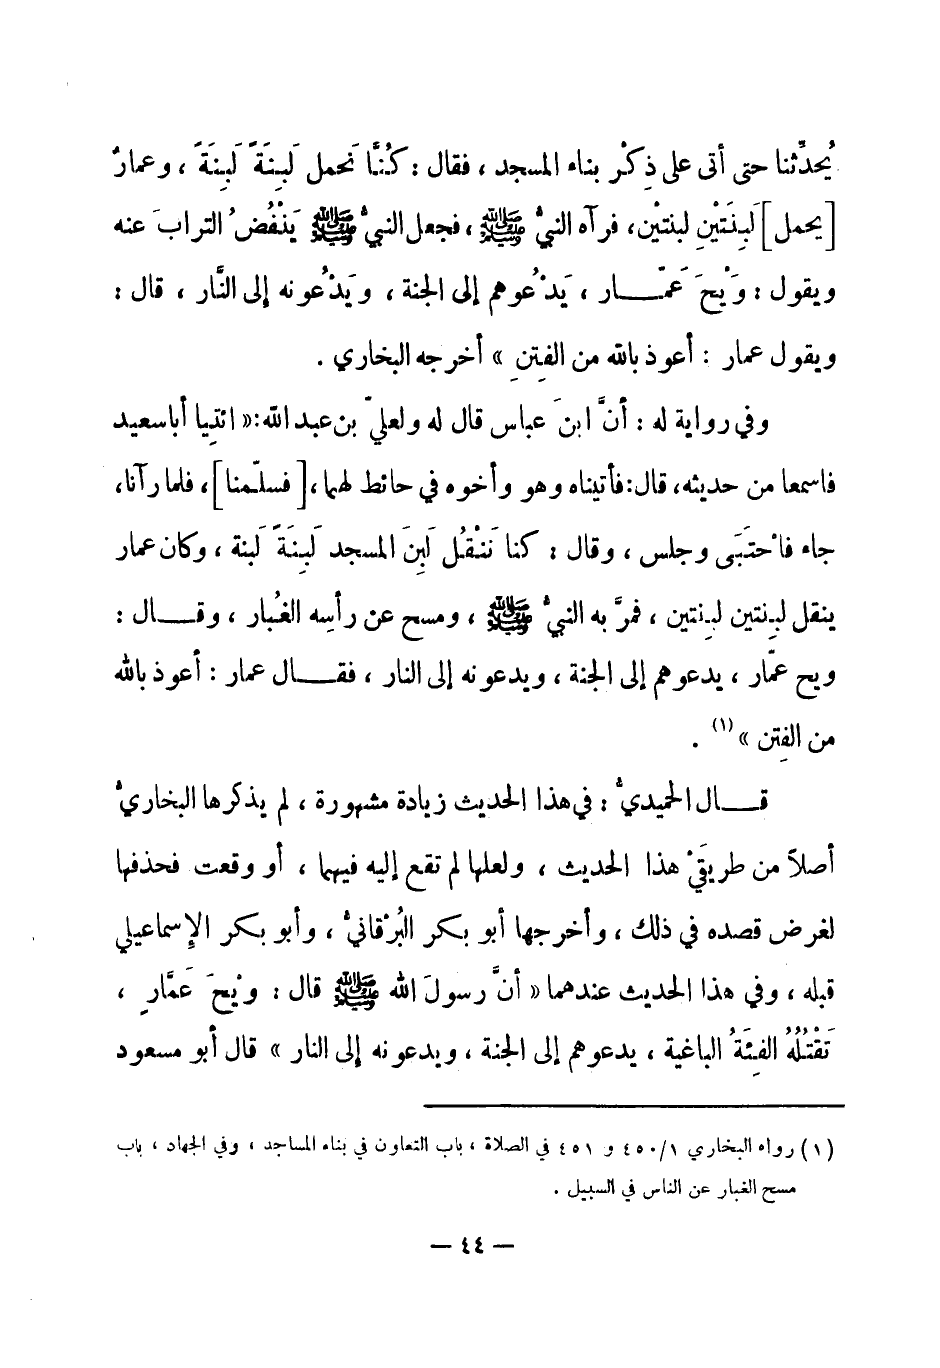 يُحدِّثنا حتى أتى على ذِكْر بناء المسجد ، فقال : كُنَّا نَحمل لَبِنَةً لَبِنَةً ، وعمارٌ
[يحمل] لَبِنَتَيْنِ لبنتيْن، فرآه النبيُّ ﷺ ، فجعل النبيُّ ﷺ يَنْفُضُ الترابَ عنه
ويقول : وَيْحَ عَمّــار ، يَدْعُوهم إلى الجنة ، ويَدْعُونه إلى النَّار ، قال :
ويقول عمار : أعوذ بالله من الفِتنِ » أخرجه البخاري .
وفي رواية له : أنَّ ابنَ عباس قال له ولعليّ بن عبد الله : « ائتِيا أبا سعيد
فاسمعا من حديثه، قال: فأتيناه وهو وأخوه في حائط لهما ، [فسلّمنا] ، فلما رآنا،
جاء فاحتَبَى وجلس ، وقال : كنا نَنْقُل لَبِنَ المسجد لَبِنَةً لَبنة ، وكان عمار
ينقل لبِنتين لبِنتين ، فمرَّ به النبيُّ ﷺ ، ومسح عن رأسِه الغُبار ، وقــال :
ويح عمّار ، يدعوهم إلى الجنة ، ويدعونه إلى النار ، فقــال عمار : أعوذ بالله
من الفِتن » (١) .
قــال الحميديُّ : في هذا الحديث زيادة مشهورة ، لم يذكرها البخاريُّ
أصلاً من طريقَيْ هذا الحديث ، ولعلها لم تقع إليه فيهما ، أو وقعت فحذفها
لغرض قصده في ذلك ، وأخرجها أبو بكر البُرْقانيُّ ، وأبو بكر الإسماعيلي
قبله ، وفي هذا الحديث عندهما « أنَّ رسولَ الله ﷺ قال : ويْحَ عَمَّارٍ ،
تَقْتُلُهُ الفِئَةُ الباغية ، يدعوهم إلى الجنة ، ويدعونه إلى النار » قال أبو مسعود
(١) رواه البخاري ٤٥٠/١ و ٤٥١ في الصلاة ، باب التعاون في بناء المساجد ، وفي الجهاد ، باب
مسح الغبار عن الناس في السبيل .
— ٤٤ —